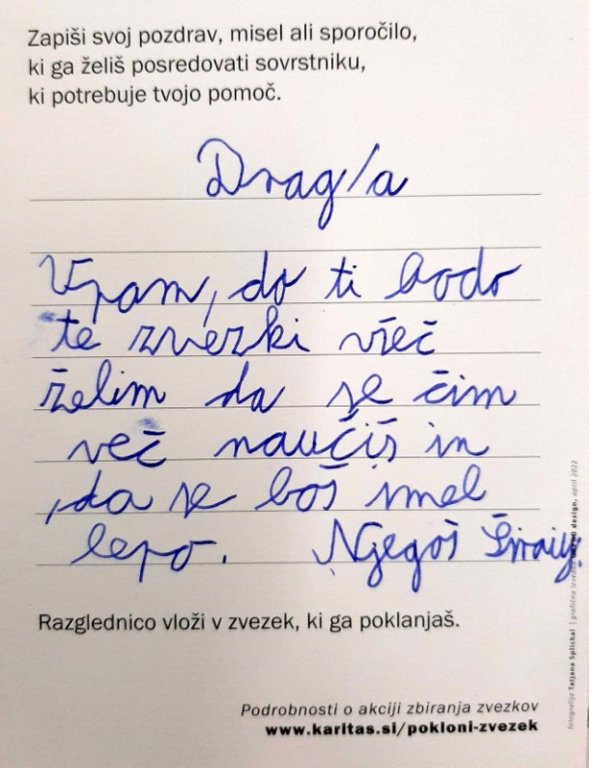 Zapiši svoj pozdrav, misel ali sporočilo,
ki ga želiš posredovati sovrstniku,
ki potrebuje tvojo pomoč.
Drag/a
Upam, do ti bodo
te zvezki všeč
želim da se čim
več naučiš in
da se boš imel
lepo. Njegoš
Razglednico vloži v zvezek, ki ga poklanjaš.
Podrobnosti o akciji zbiranja zvezkov
www.karitas.si/pokloni-zvezek
fotografija Tatjana Splichal | grafična izvedba design, april 2022